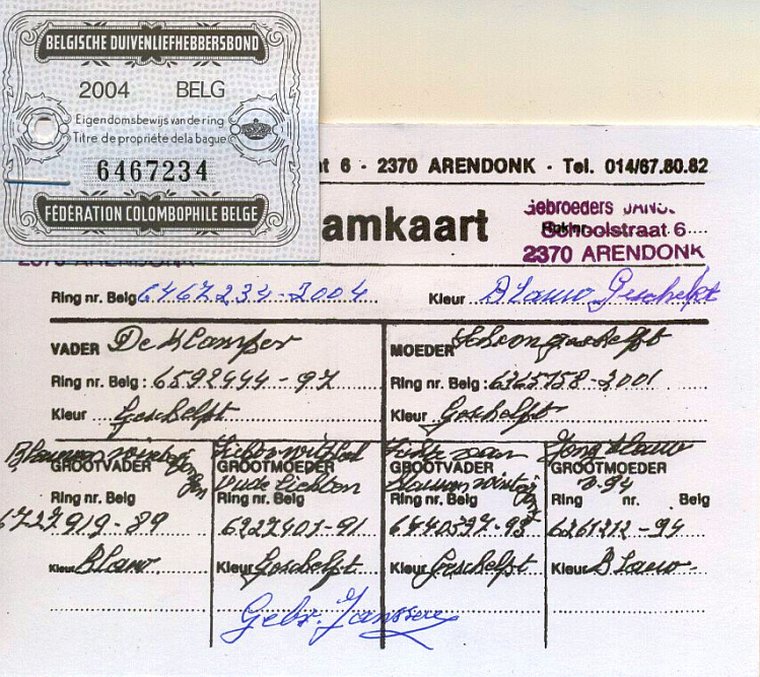 BELGISCHE DUIVENLIEFHEBBERSBOND
2004 BELG
Eigendomsbewijs van de ring
Titre de propriéte de la bague
6467234
FÉDÉRATION COLOMBOPHILE BELGE
t 6 - 2370 ARENDONK - Tel. 014/67.80.82
amkaart
Gebroeders JANS
Schoolstraat 6
2370 ARENDONK
Ring nr. Belg 6467234-2004 Kleur Blauw Geschelpt
VADER De Klamper MOEDER Schoongeschelpt
Ring nr. Belg : 6592444-97 Ring nr. Belg : 6365758-2001
Kleur Geschelpt Kleur Geschelpt
GROOTVADER GROOTMOEDER GROOTVADER GROOTMOEDER
Oude Lichten
Ring nr. Belg Ring nr. Belg Ring nr. Belg Ring nr. Belg
6727919-89 6227401-91 6440397-93 6261212-94
Kleur Blauw Kleur Geschelpt Kleur Geschelpt Kleur Blauw
Gebr. Janssen